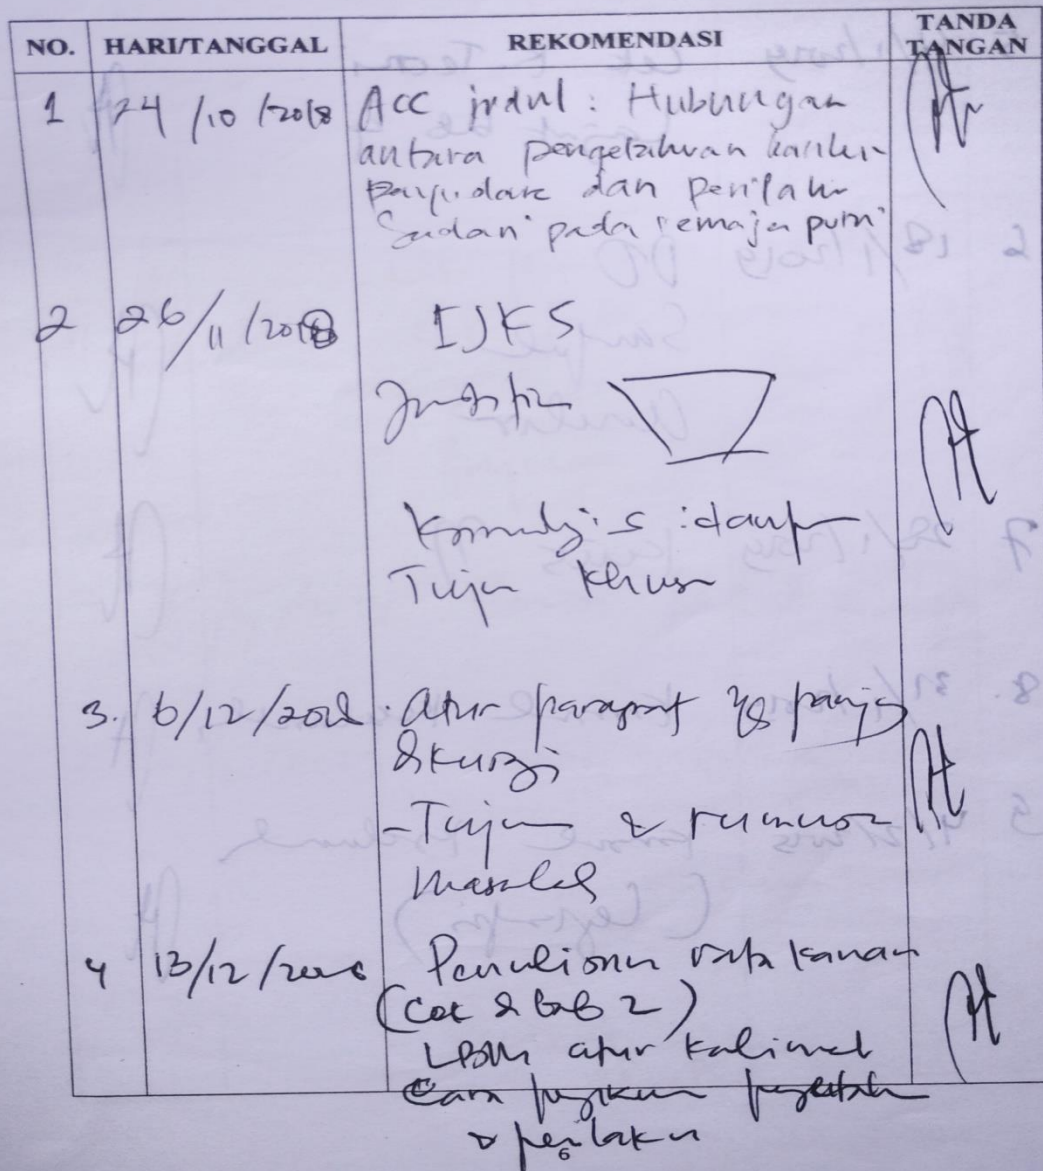 NO. HARI/TANGGAL REKOMENDASI TANDA TANGAN
1 24/10/2018 Acc judul : Hubungan
antara pengetahuan kanker
payudara dan perilaku
Sadari pada remaja putri
2 26/11/2018 IJKS
Tujuan Khusus
3. 6/12/2018 - atur paragraf yg panjang
& kurangi
- Tujuan & rumusan
masalah
4 13/12/2018 Penulisan rata kanan
(Cek & bab 2)
LBM atur kalimat
Cara pengukuran pengetahuan
& perilaku
6